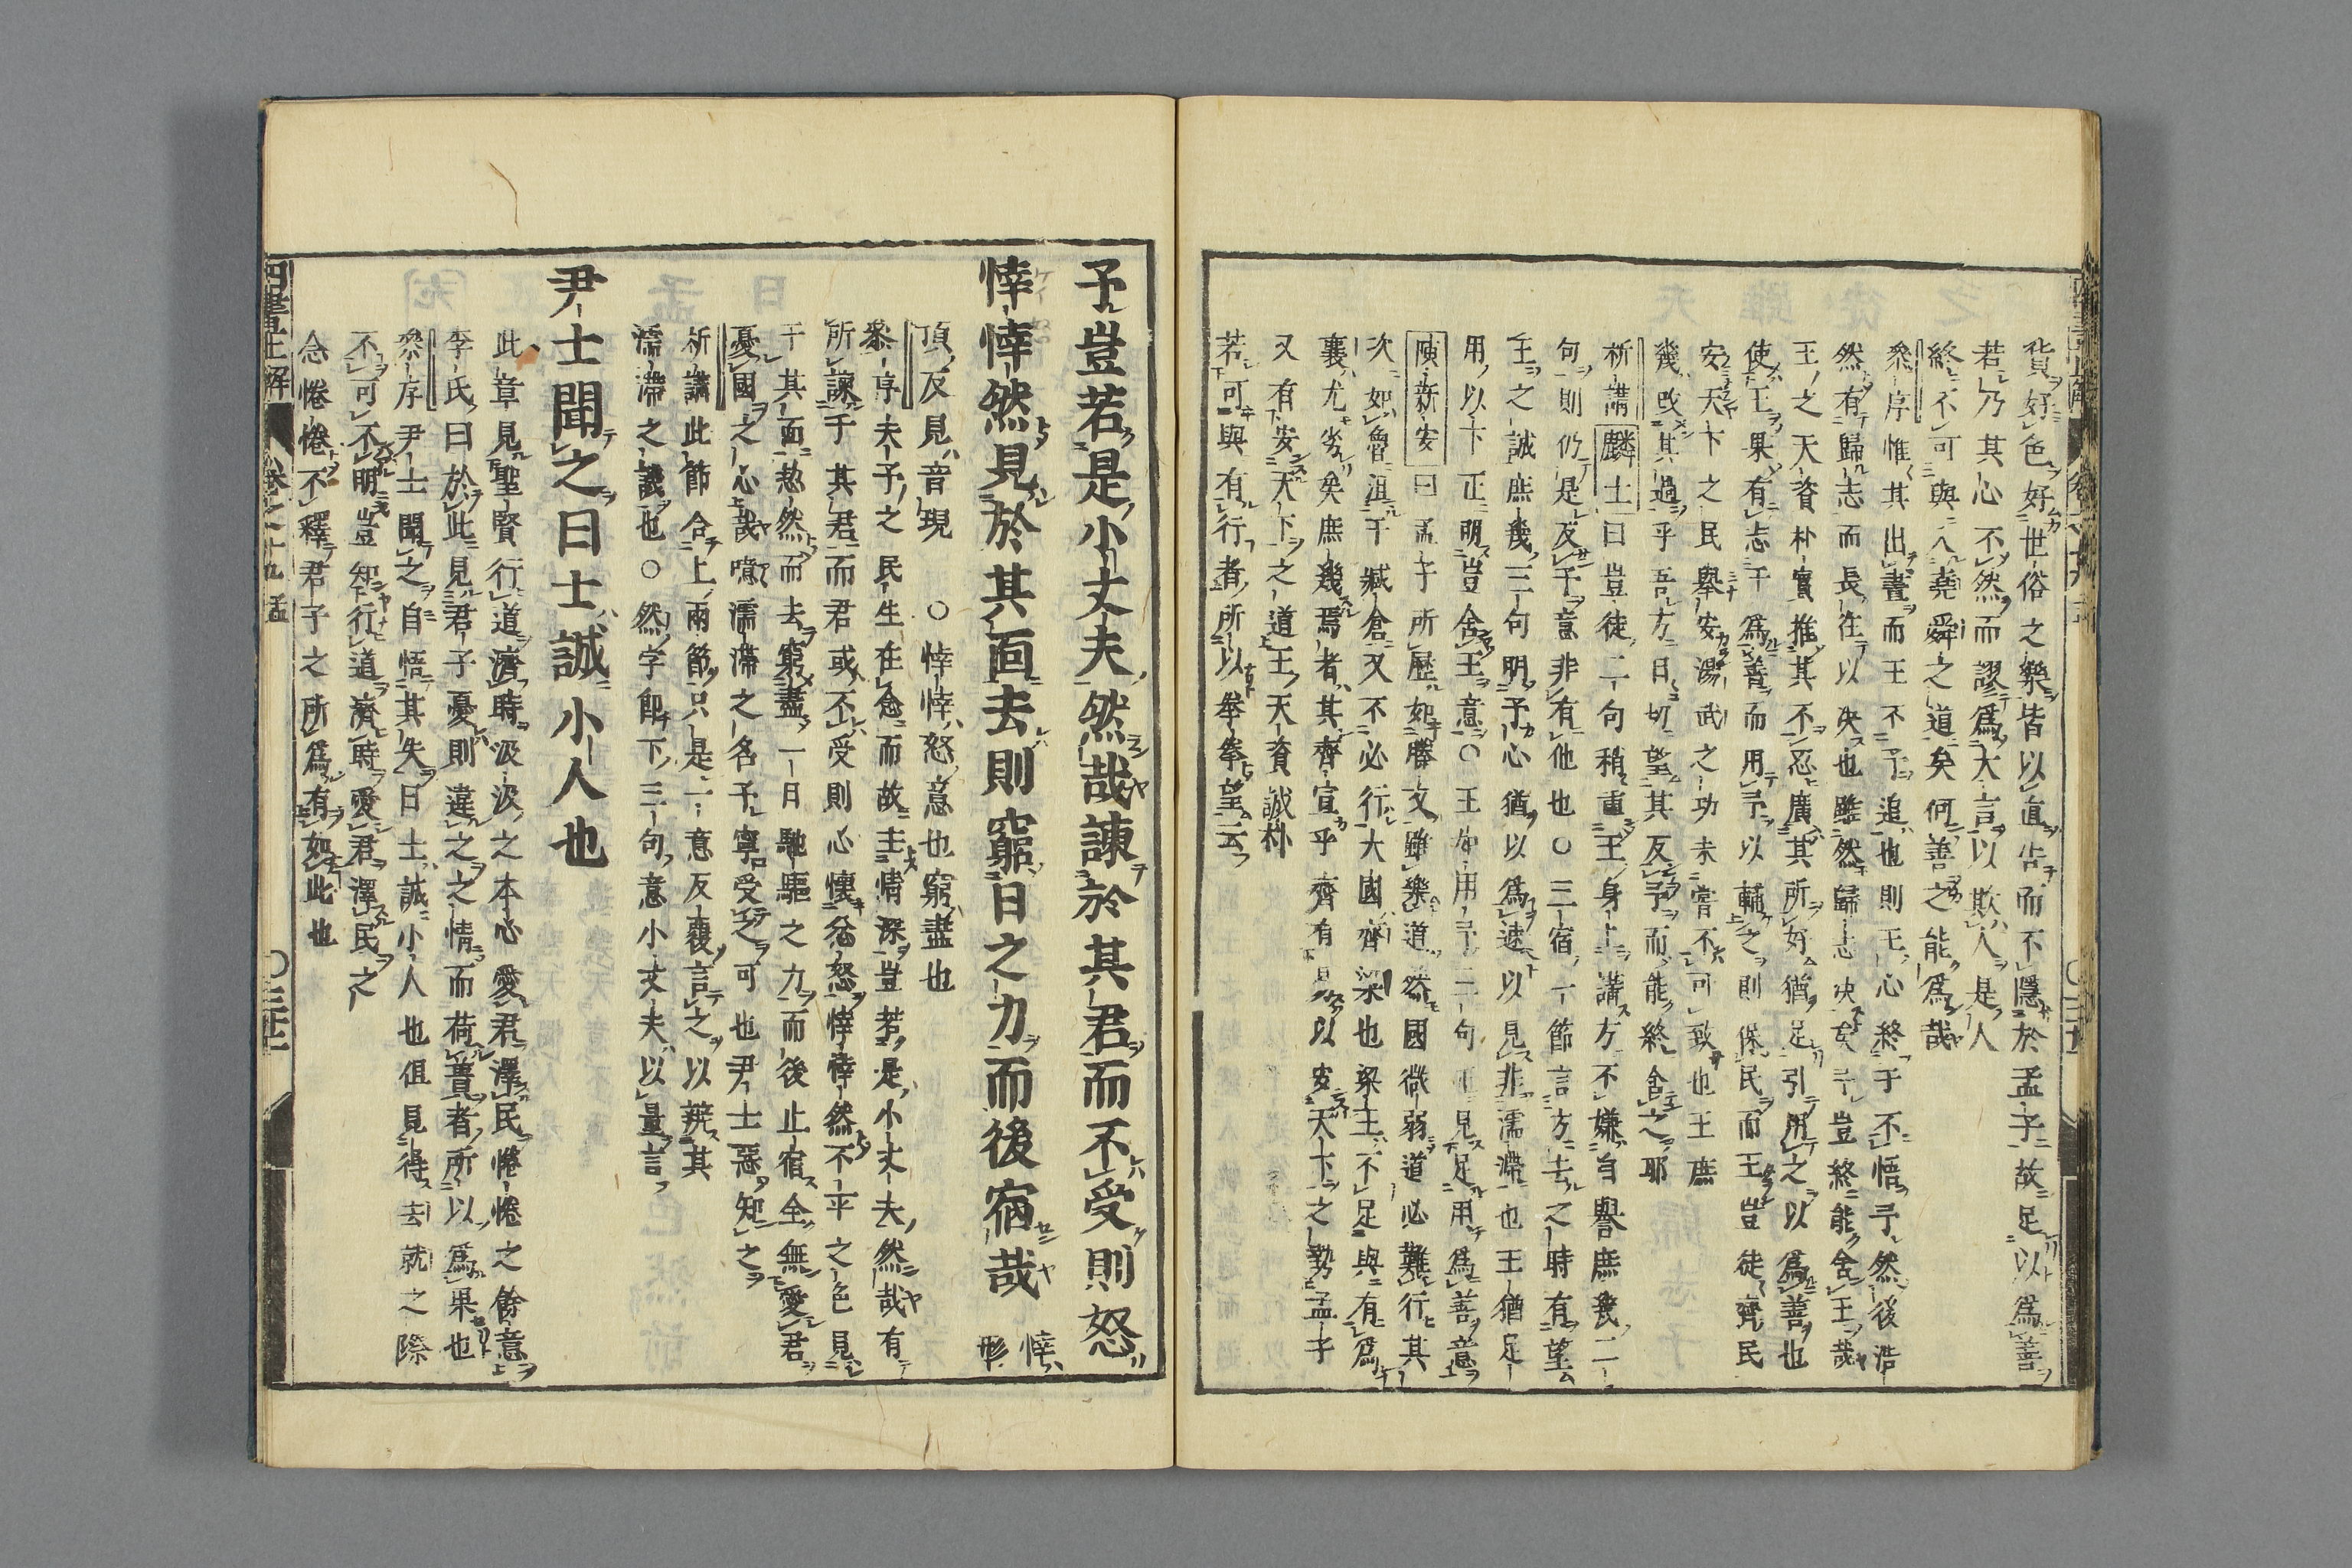 貨好色好世俗之樂皆以直告而不隱於孟子故足以爲善
若乃其心不然而謬爲大言以欺人是人
終不可與入堯舜之道矣何善之能爲哉
叅序惟其出晝而王不予追也則王心終于不悟予然後浩
然有歸志而長往以决也雖然歸志决矣予豈終能舍王哉
王之天資朴實推其不忍廣其所好猶足引用之以爲善也
使王果有志于爲善而用予以輔之則保民而王豈徒齊民
安天下之民舉安湯武之功未嘗不可致也王庶
幾改其過乎吾方日切望其反予而能終舍之耶
析講麟士曰豈徒二句稍重王身上講方不嫌自譽庶幾二
句則仍是反于意非有他也○三宿一節言方去之時有望
王之誠庶幾三句明予心猶以爲速以見非濡滯也王猶足
用以下正明豈舍王意○王如用予二句正見足用爲善意
陳新安曰孟子所歷如滕文雖樂道然國微弱道必難行其
次如魯沮于臧倉又不必行大國齊梁也梁王不足與有爲
襄尤劣矣庶幾焉者其齊宣乎齊有見以安天下之勢孟子
又有安天下之道王天資誠朴
若可與有行者所以拳拳望云
予豈若是小丈夫然哉諫於其君而不受則怒
悻悻然見於其面去則窮日之力而後宿哉悻形
頂反見音現○悻悻怒意也窮盡也
叅序夫予之民生在念而故主情深豈若是小丈夫然哉有
所諫于其君而君或不受則心懷忿怒悻悻然不平之色見
于其面㤠然而去窮盡一日馳驅之力而後止宿全無愛君
憂國之心哉噫濡滯之名予寧受之可也尹士惡知之
析講此節合上兩節只是一意反覆言之以辨其
濡滯之譏也○然字卽下三句意小丈夫以量言
尹士聞之曰士誠小人也
此章見聖賢行道濟時汲汲之本心愛君澤民惓惓之餘意
李氏曰於此見君子憂則違之之情而荷蕢者所以爲果也
叅序尹士聞之自悟其失曰士誠小人也但見得去就之際
不可不明豈知行道濟時愛君澤民之
念惓惓不釋君子之所爲有如此也
四書正解 卷之十九孟